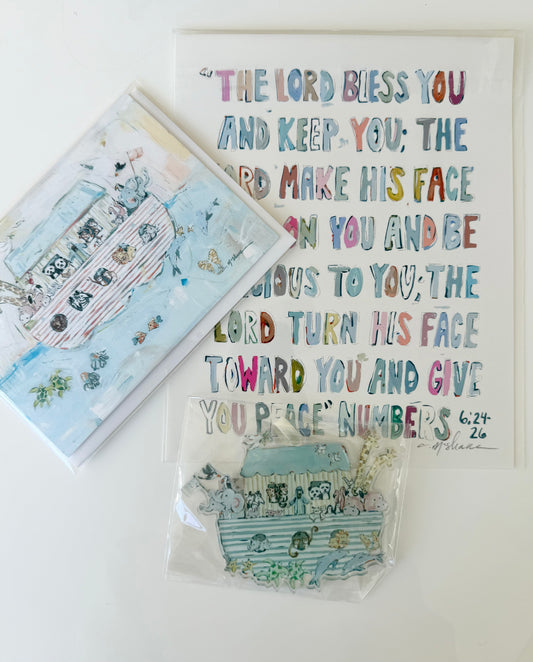 "THE LORD BLESS YOU
AND KEEP YOU; THE
LORD MAKE HIS FACE
ON YOU AND BE
CIOUS TO YOU; THE
LORD TURN HIS FACE
TOWARD YOU AND GIVE
YOU PEACE" NUMBERS 6:24-
26